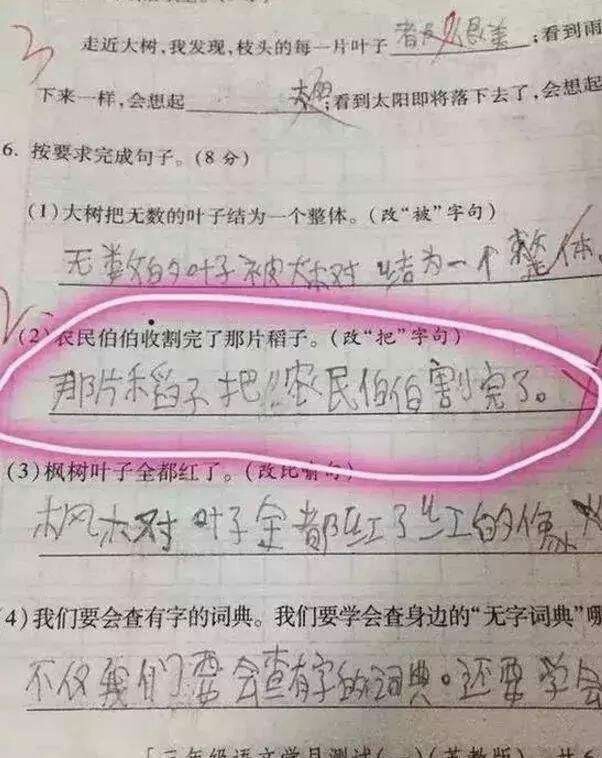 走近大树,我发现,枝头的每一片叶子 很美 ;看到雨
下来一样,会想起 ;看到太阳即将落下去了,会想起
6. 按要求完成句子。(8分)
(1)大树把无数的叶子结为一个整体。(改“被”字句)
无数的叶子被大树结为一个整体。
(2)农民伯伯收割完了那片稻子。(改“把”字句)
那片稻子把农民伯伯割完了。
(3)枫树叶子全都红了。(改比喻句)
枫树叶子全都红了红的像火
(4)我们要会查有字的词典。我们要学会查身边的“无字词典”
不仅我们要会查有字的词典。还要学会
[三年级语文学月测试(一)(苏教版) 共6